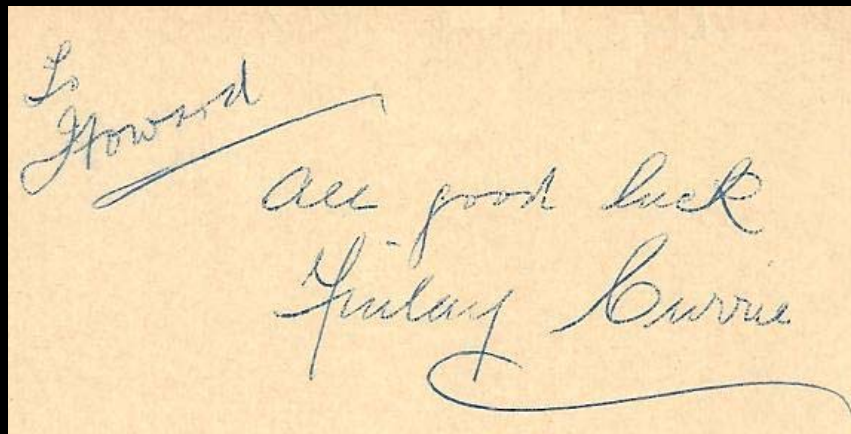 To
Howard
All good luck
Finlay Currie